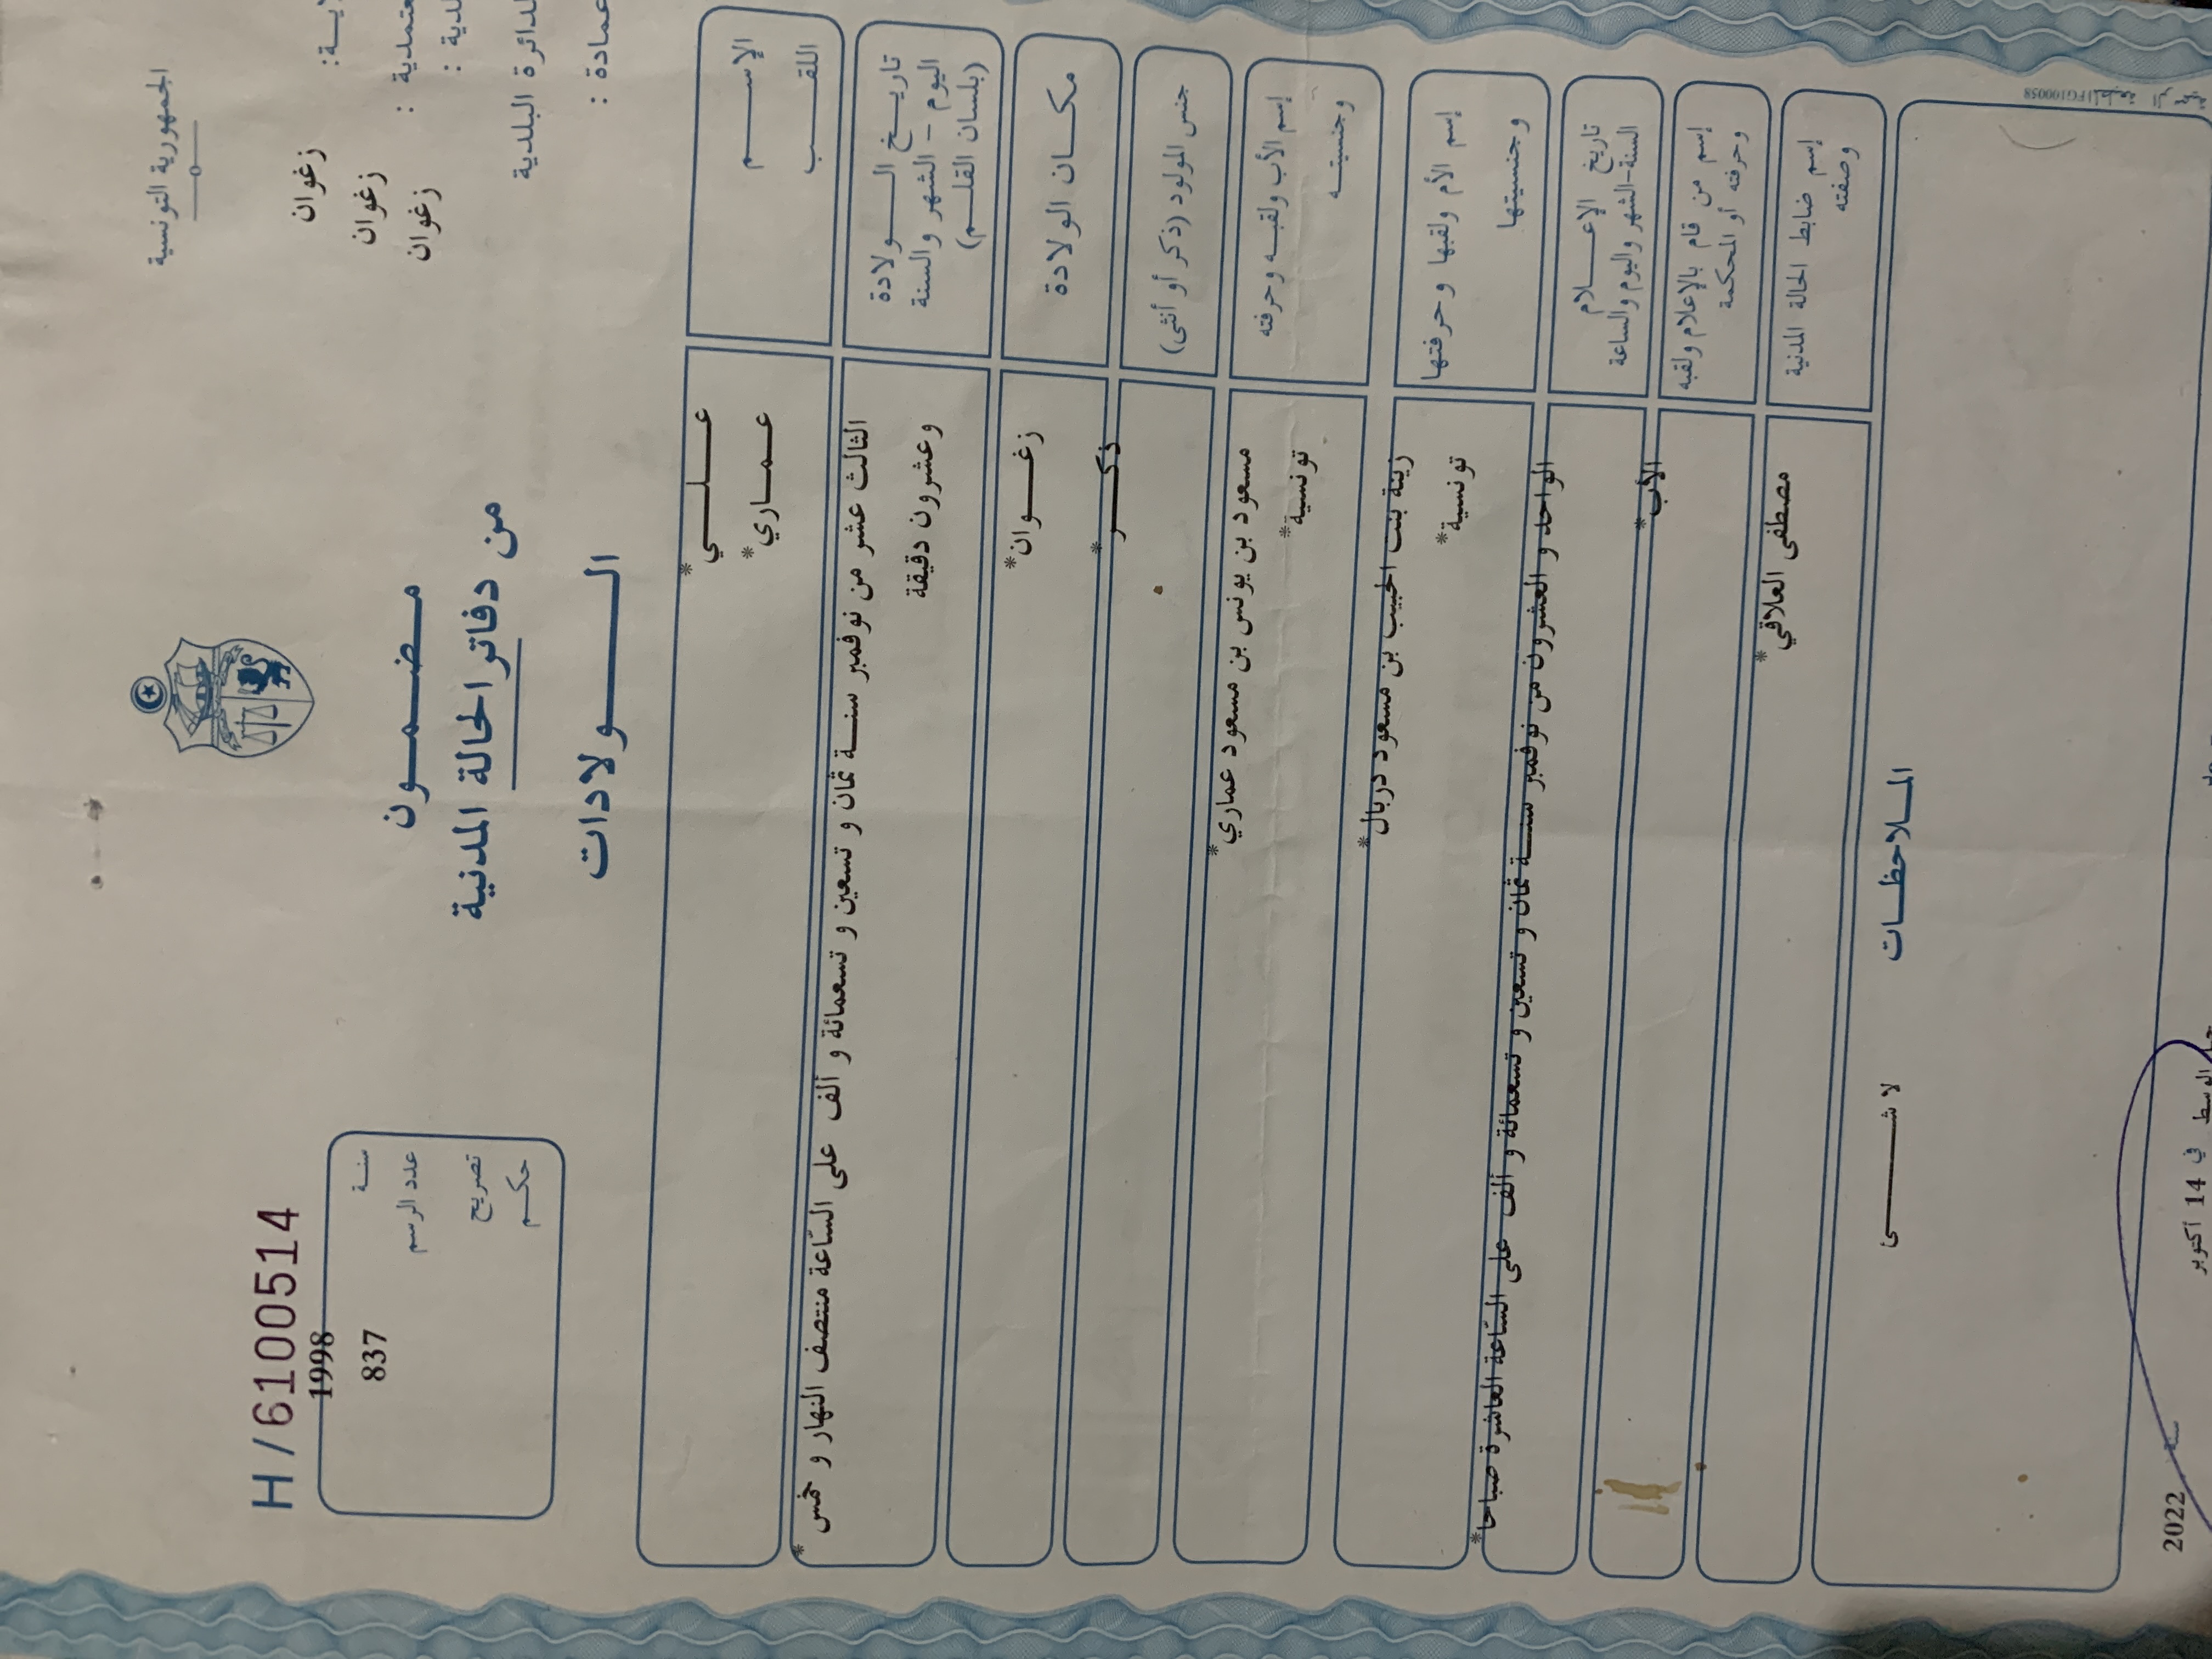 الجمهورية التونسية
زغوان
معتمدية : زغوان
زغوان
الدائرة البلدية
عمادة :
مضمون
من دفاتر الحالة المدنية
الولادات
H/6100514
سنة 1998
عدد الرسم 837
تصريح
حكم
الإسم علي*
اللقب عماري*
تاريخ الولادة
اليوم - الشهر والسنة
(بلسان القلم)
الثالث عشر من نوفمبر سنة ثمان و تسعين و تسعمائة و ألف على السّاعة منتصف النهار و خمس *
وعشرون دقيقة
مكان الولادة زغوان*
جنس المولود (ذكر أو أنثى) ذكر*
إسم الأب ولقبه وحرفته مسعود بن يونس بن مسعود عماري*
وجنسيته تونسية*
إسم الأم ولقبها وحرفتها زينة بنت الحبيب بن مسعود دربال*
وجنسيتها تونسية*
تاريخ الإعلام
السنة-الشهر واليوم والساعة
الواحد و العشرون من نوفمبر سنة ثمان و تسعين و تسعمائة و ألف على السّاعة العاشرة صباحا*
إسم من قام بالإعلام ولقبه
وحرفته أو المحكمة
الأب*
إسم ضابط الحالة المدنية
وصفته
مصطفى العلاقي*
الملاحظات
لا شئ
FG100058
في 14 أكتوبر سنة 2022